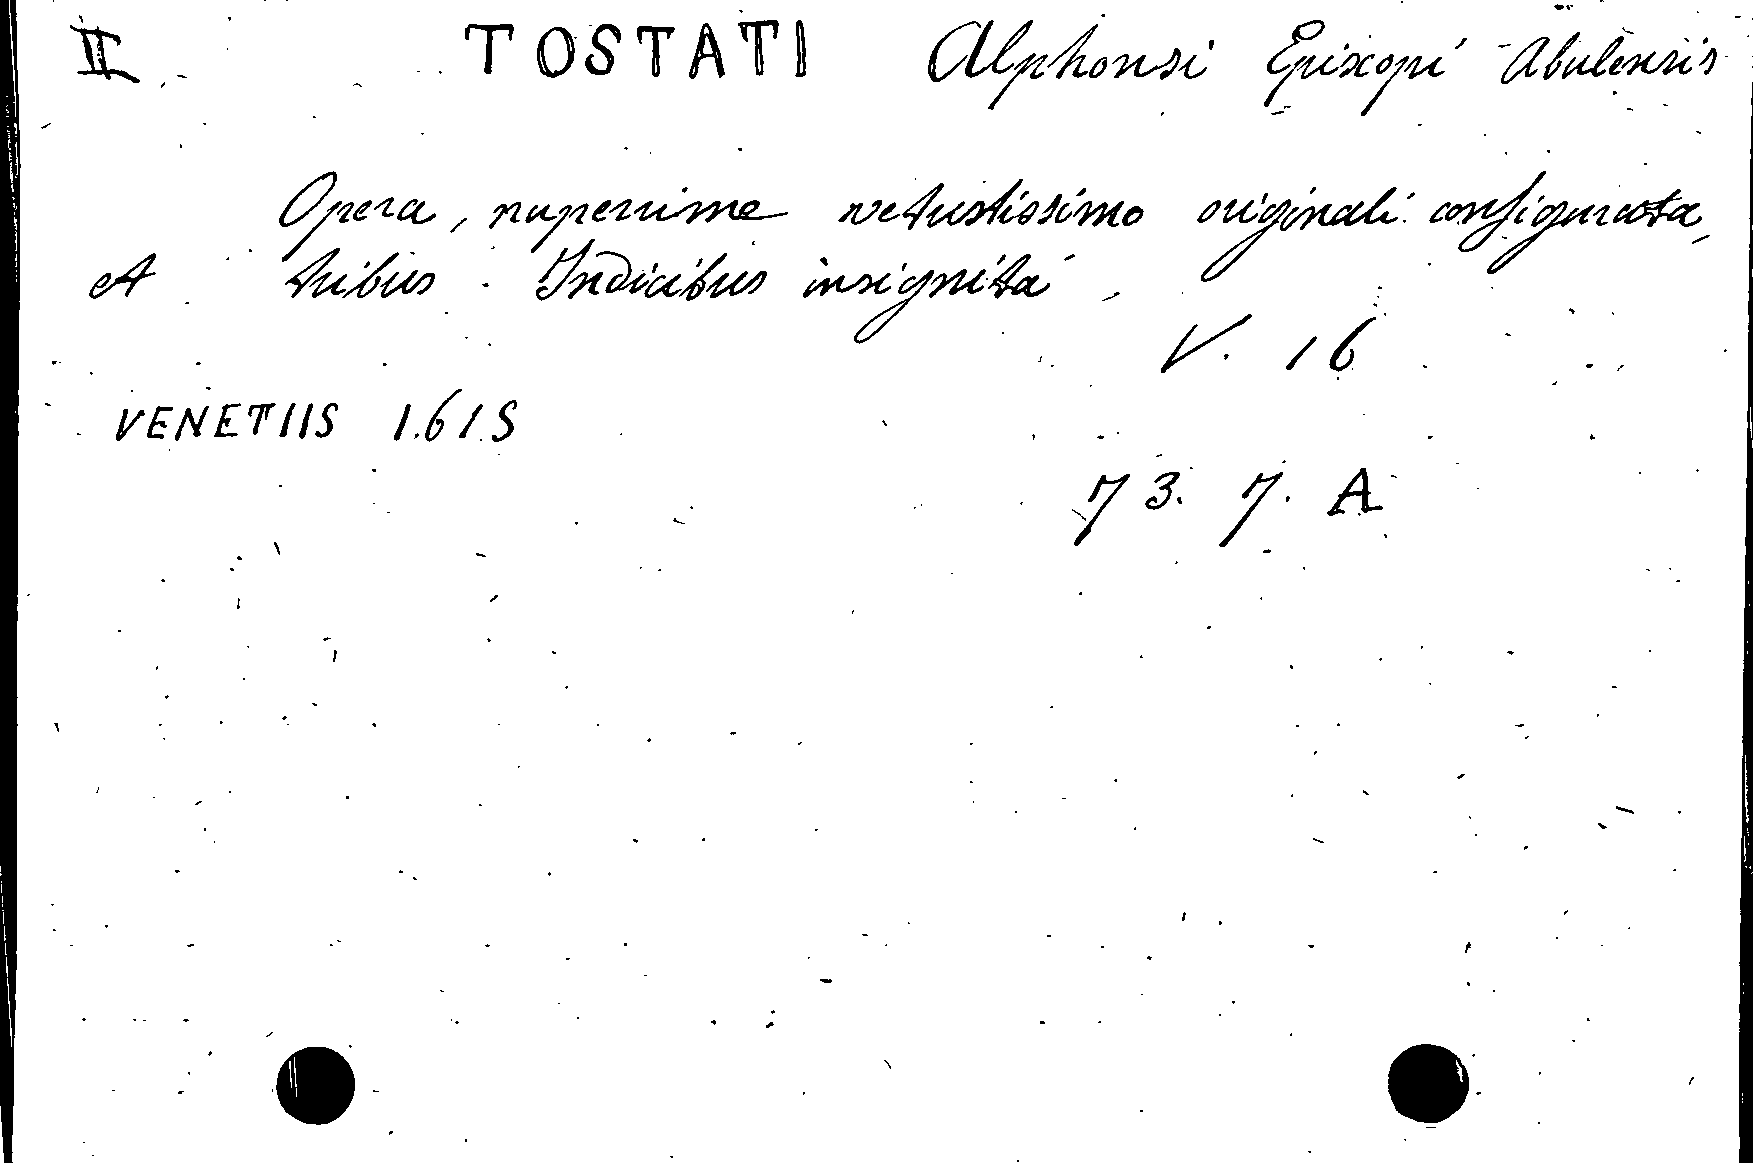 II TOSTATI Alphonsi Episcopi Abulensis
Opera, nuperrime vetustissimo originali configurata,
et tribus Indicibus insignita
V. 16
VENETIIS 1615
73. 7. A